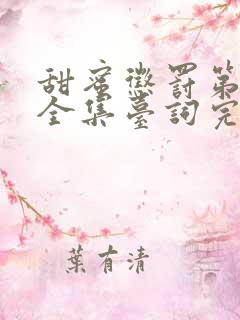 甜蜜懲罰第
全集臺詞完
葉有清